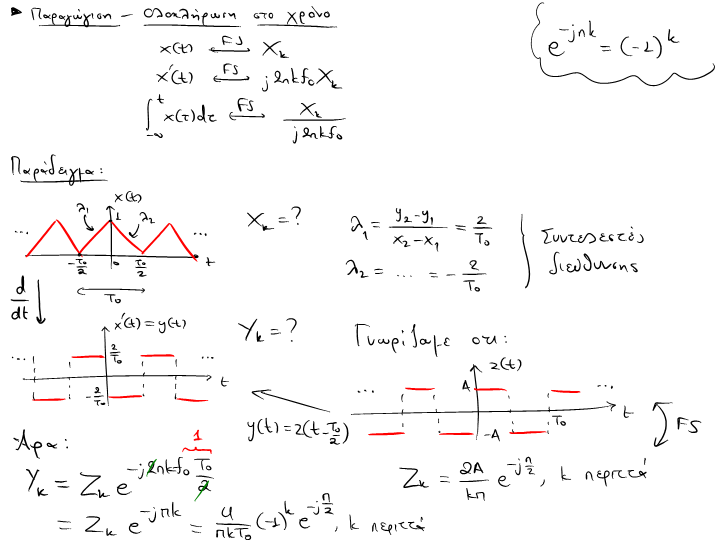 ▸ Παραγώγιση - Ολοκλήρωση στο χρόνο
x(t) ⟷FS X_k
x'(t) ⟷FS j2πkf₀X_k
∫_{-∞}^{t} x(τ)dτ ⟷FS X_k / j2πkf₀
e^{-jπk} = (-1)^k
Παράδειγμα:
x(t)
λ₁ 1 λ₂
... ...
-T₀/2 0 T₀/2 t
T₀
X_k = ?
λ₁ = (y₂-y₁)/(x₂-x₁) = 2/T₀
λ₂ = ... = -2/T₀
Συντελεστές
διεύθυνσης
d/dt
x'(t) = y(t)
2/T₀
... ...
-2/T₀
t
Y_k = ?
Γνωρίζαμε οτι:
z(t)
... A ...
-A T₀ t
FS
y(t) = z(t-T₀/2)
Z_k = 2A/kπ e^{-jπ/2}, k περιττά
Άρα:
1
Y_k = Z_k e^{-j2πkf₀ T₀/2}
= Z_k e^{-jπk} = 4/πkT₀ (-1)^k e^{-jπ/2}, k περιττά